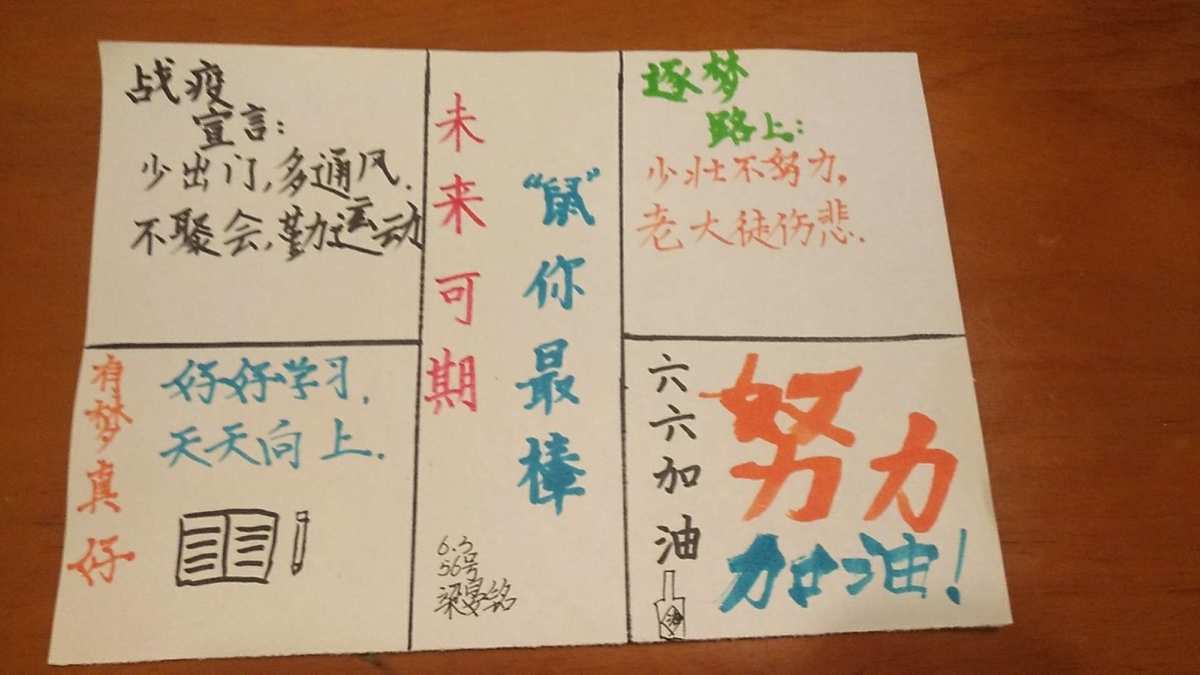 战疫
宣言:
少出门,多通风.
不聚会,勤运动
有梦真好
好好学习,
天天向上.
未来可期
“鼠”你最棒
6.3
56号
梁晏铭
逐梦
路上:
少壮不努力,
老大徒伤悲.
六六加油
油
努力
加油!